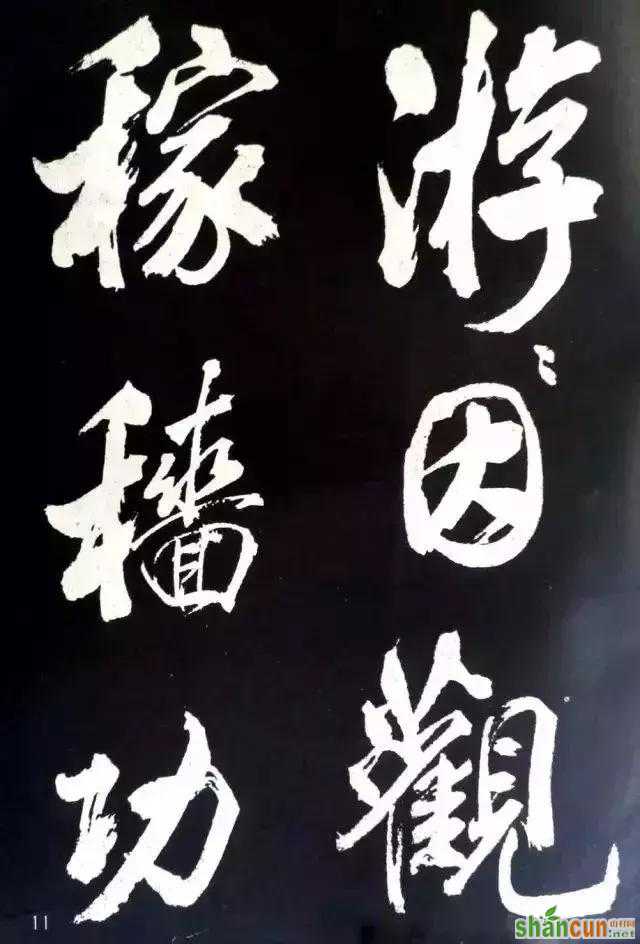 游〻因觀
稼穡功
11
shancun
山村网
.net